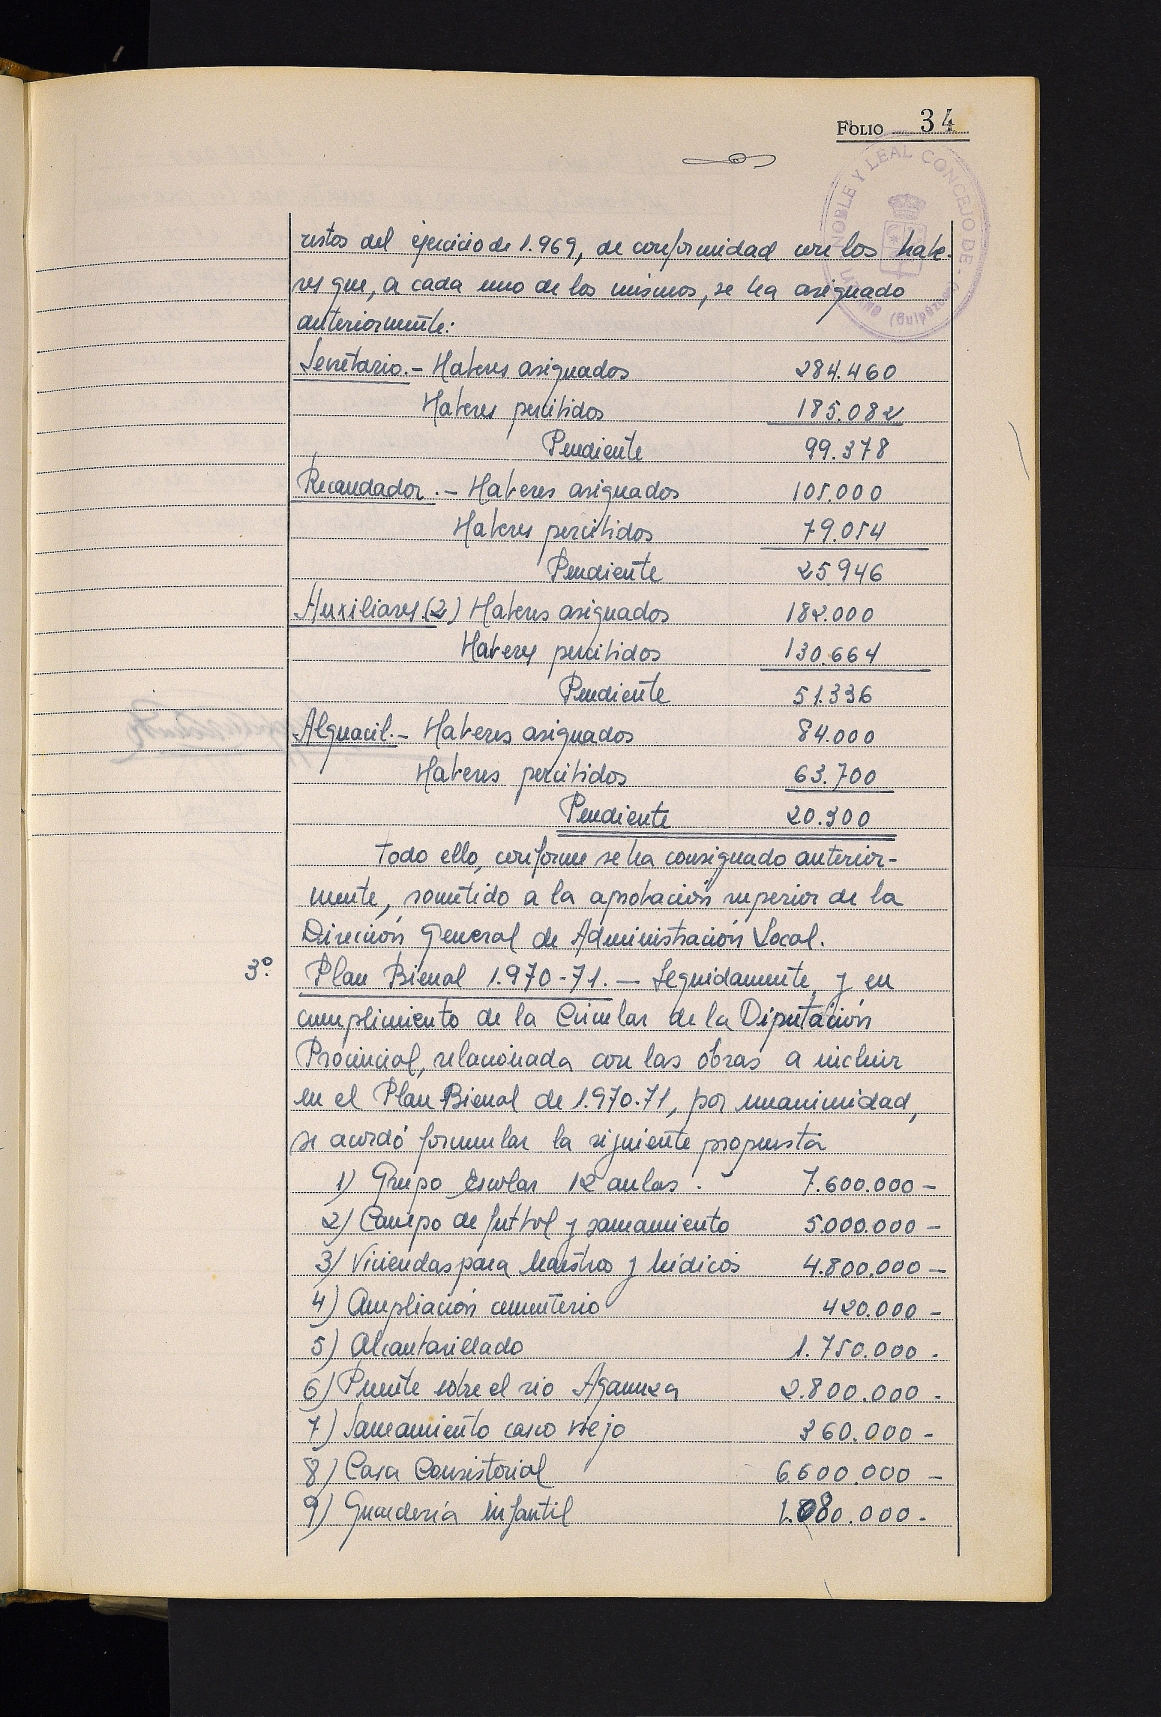 FOLIO 34
NOBLE Y LEAL CONCEJO DE - (Guipúzcoa)
restos del ejercicio de 1.969, de conformidad con los habe-
res que, a cada uno de los mismos, se ha asignado
anteriormente:
Secretario.- Haberes asignados 284.460
Haberes percibidos 185.082
Pendiente 99.378
Recaudador.- Haberes asignados 105.000
Haberes percibidos 79.054
Pendiente 25.946
Auxiliares (2) Haberes asignados 182.000
Haberes percibidos 130.664
Pendiente 51.336
Alguacil.- Haberes asignados 84.000
Haberes percibidos 63.700
Pendiente 20.300
Todo ello, conforme se ha consignado anterior-
mente, sometido a la aprobación superior de la
Dirección General de Administración Local.
3º. Plan Bienal 1.970-71.- Seguidamente, y en
cumplimiento de la Circular de la Diputación
Provincial, relacionada con las obras a incluir
en el Plan Bienal de 1.970.71, por unanimidad,
se acordó formular la siguiente propuesta
1) Grupo Escolar 12 aulas. 7.600.000 -
2) Campo de futbol y saneamiento 5.000.000 -
3) Viviendas para Maestros y Médicos 4.800.000 -
4) Ampliación cementerio 420.000 -
5) Alcantarillado 1.750.000 -
6) Puente sobre el rio Agaunza 2.800.000 -
7) Saneamiento casco viejo 360.000 -
8) Casa Consistorial 6.600.000 -
9) Guardería infantil 1.080.000 -